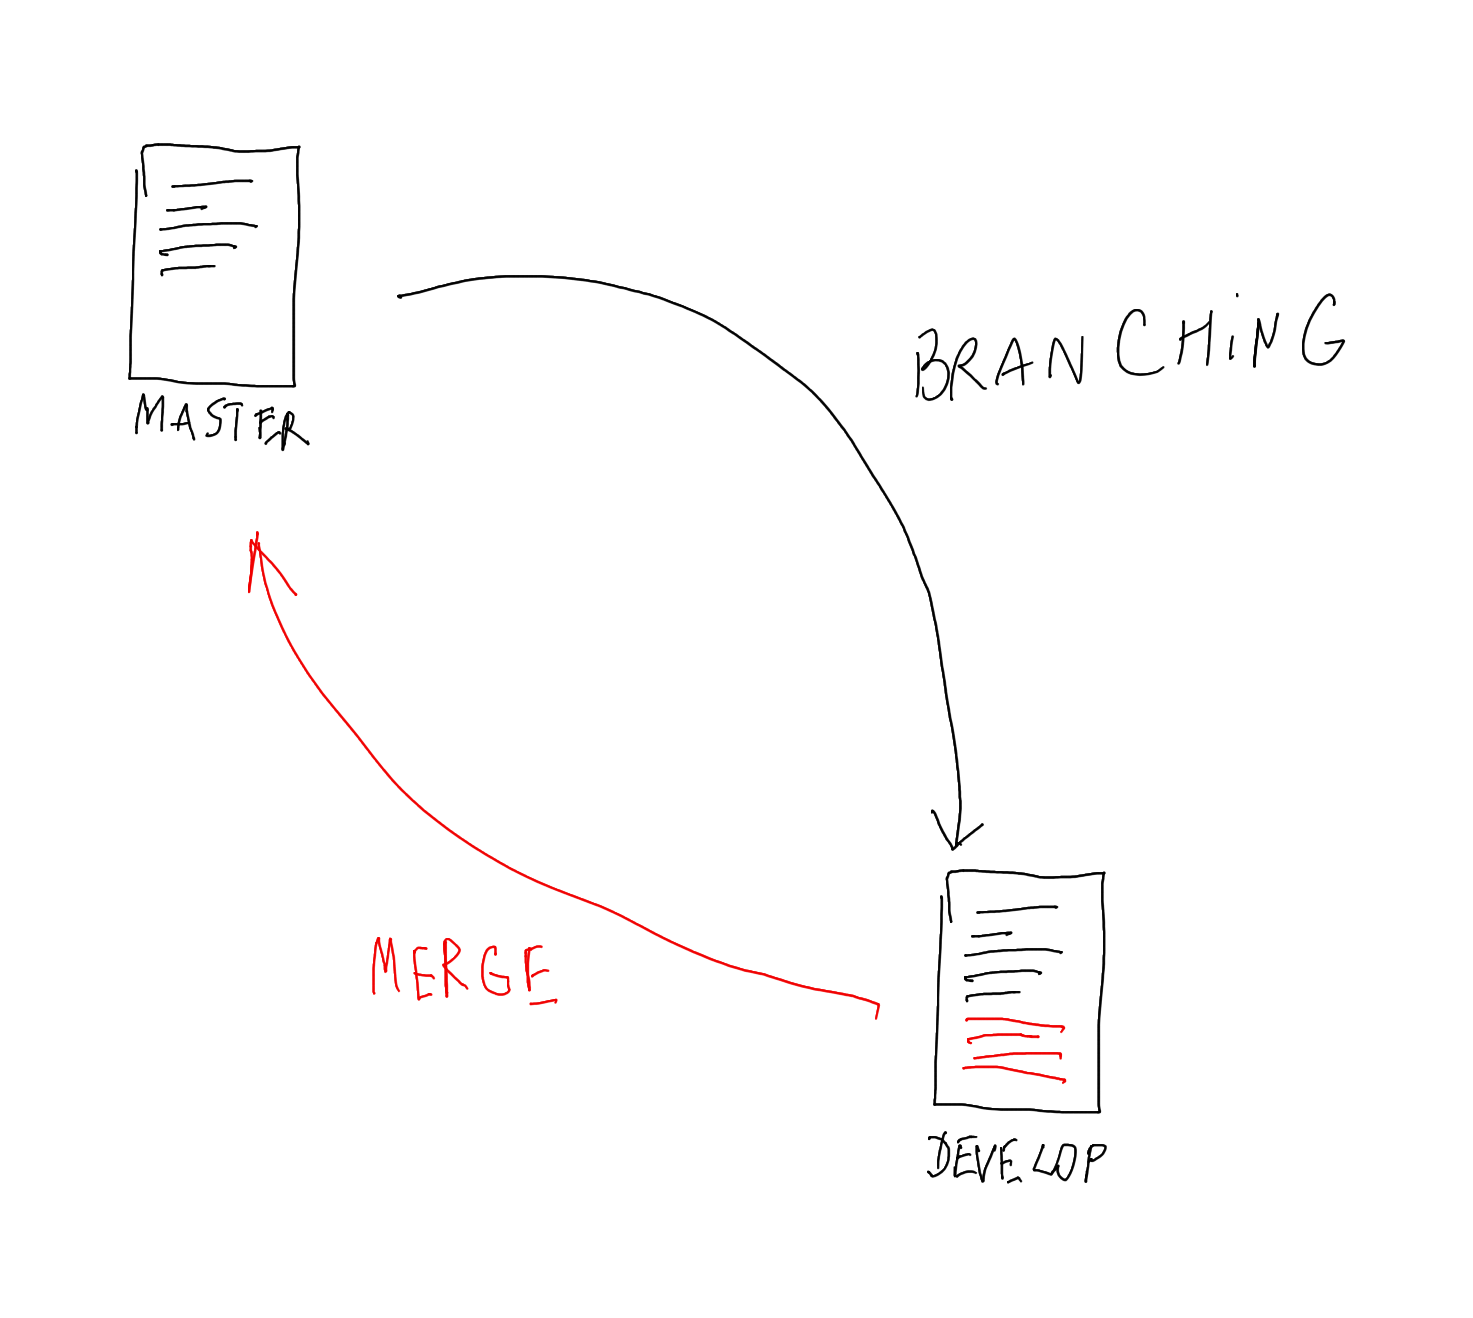 MASTER
BRANCHiNG
MERGE
DEVELOP